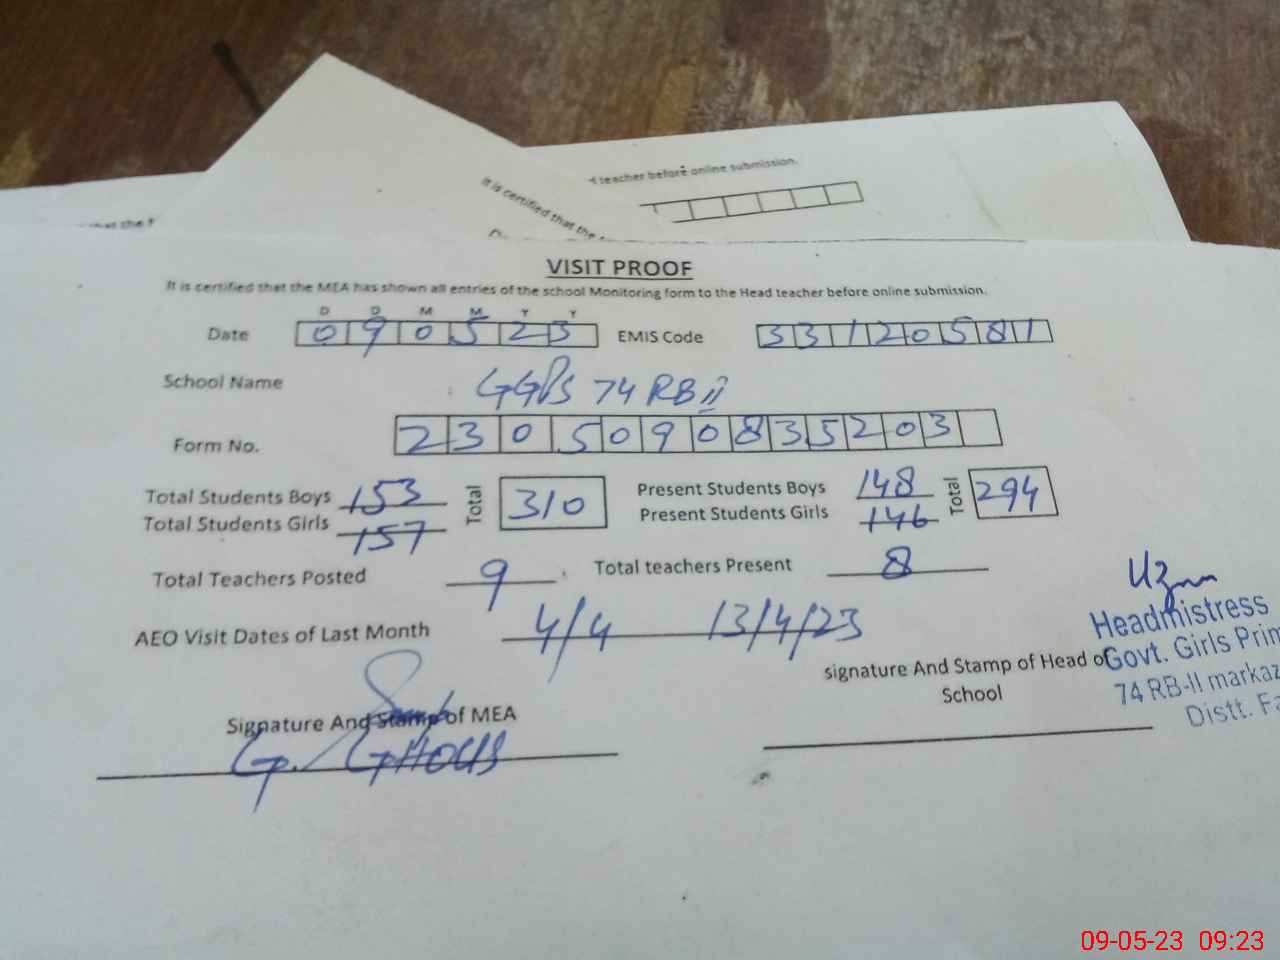 teacher before online submission.
It is certified that the
that the
VISIT PROOF
It is certified that the MEA has shown all entries of the school Monitoring form to the Head teacher before online submission.
D D M M Y Y
Date 0 9 0 5 2 3 EMIS Code 3 3 1 2 0 5 8 1
School Name GGPS 74 RB II
Form No. 2 3 0 5 0 9 0 8 3 5 2 0 3
Total Students Boys 153 Total 310 Present Students Boys 148 Total 294
Total Students Girls 157 Present Students Girls 146
Total Teachers Posted 9 Total teachers Present 8
AEO Visit Dates of Last Month 4/4 13/4/23
Headmistress
Govt. Girls Prim
74 RB-II markaz
Distt. Fa
signature And Stamp of Head of
School
Signature And Stamp of MEA
G. GHOUS
09-05-23 09:23